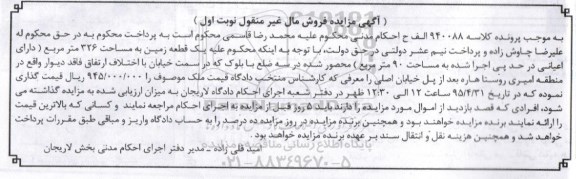 ( آگهی مزایده فروش مال غیر منقول نوبت اول )
به موجب پرونده کلاسه ۹۴۰۰۸۸ الف ح احکام مدنی محکوم علیه محمد رضا قاسمی محکوم است به پرداخت محکوم به در حق محکوم له
علیرضا چاوش زاده و پرداخت نیم عشر دولتی در حق دولت، با توجه به اینکه محکوم علیه یک قطعه زمین به مساحت ۳۲۶ متر مربع ( دارای
اعیانی در حد پی اجرا شده به مساحت ۹۰ متر مربع ) محصور شده در سه ضلع با بلوک که در سمت خیابان با اختلاف ارتفاع فاقد دیوار واقع در
منطقه امیری روستا هاره بعد از پل خیابان اصلی را معرفی که کارشناس منتخب دادگاه قیمت ملک موصوف را ۹۴۵/۰۰۰/۰۰۰ ریال قیمت گذاری
نموده که در تاریخ ۹۵/۴/۳۱ ساعت ۱۲ الی ۱۲:۳۰ ظهر در دفتر شعبه اجرای احکام دادگاه لاریجان به میزان ارزیابی شده به مزایده گذاشته می
شود، افرادی که قصد بازدید از اموال مورد مزایده را دارند باید ۵ روز قبل از مزایده به اجرای احکام مراجعه نمایند و کسانی که بالاترین قیمت
را ارائه نمایند برنده مزایده خواهند بود و همچنین برنده مزایده در روز مزایده ده درصد را به حساب دادگاه واریز و مابقی طبق مقررات پرداخت
خواهد شد و همچنین هزینه نقل و انتقال سند بر عهده برنده مزایده خواهند بود.
امید قلی زاده ـ مدیر دفتر اجرای احکام مدنی بخش لاریجان
پایگاه اطلاع رسانی مناقصه و مزایده
۰۲۱-۸۸۳۴۹۶۷۰-۵